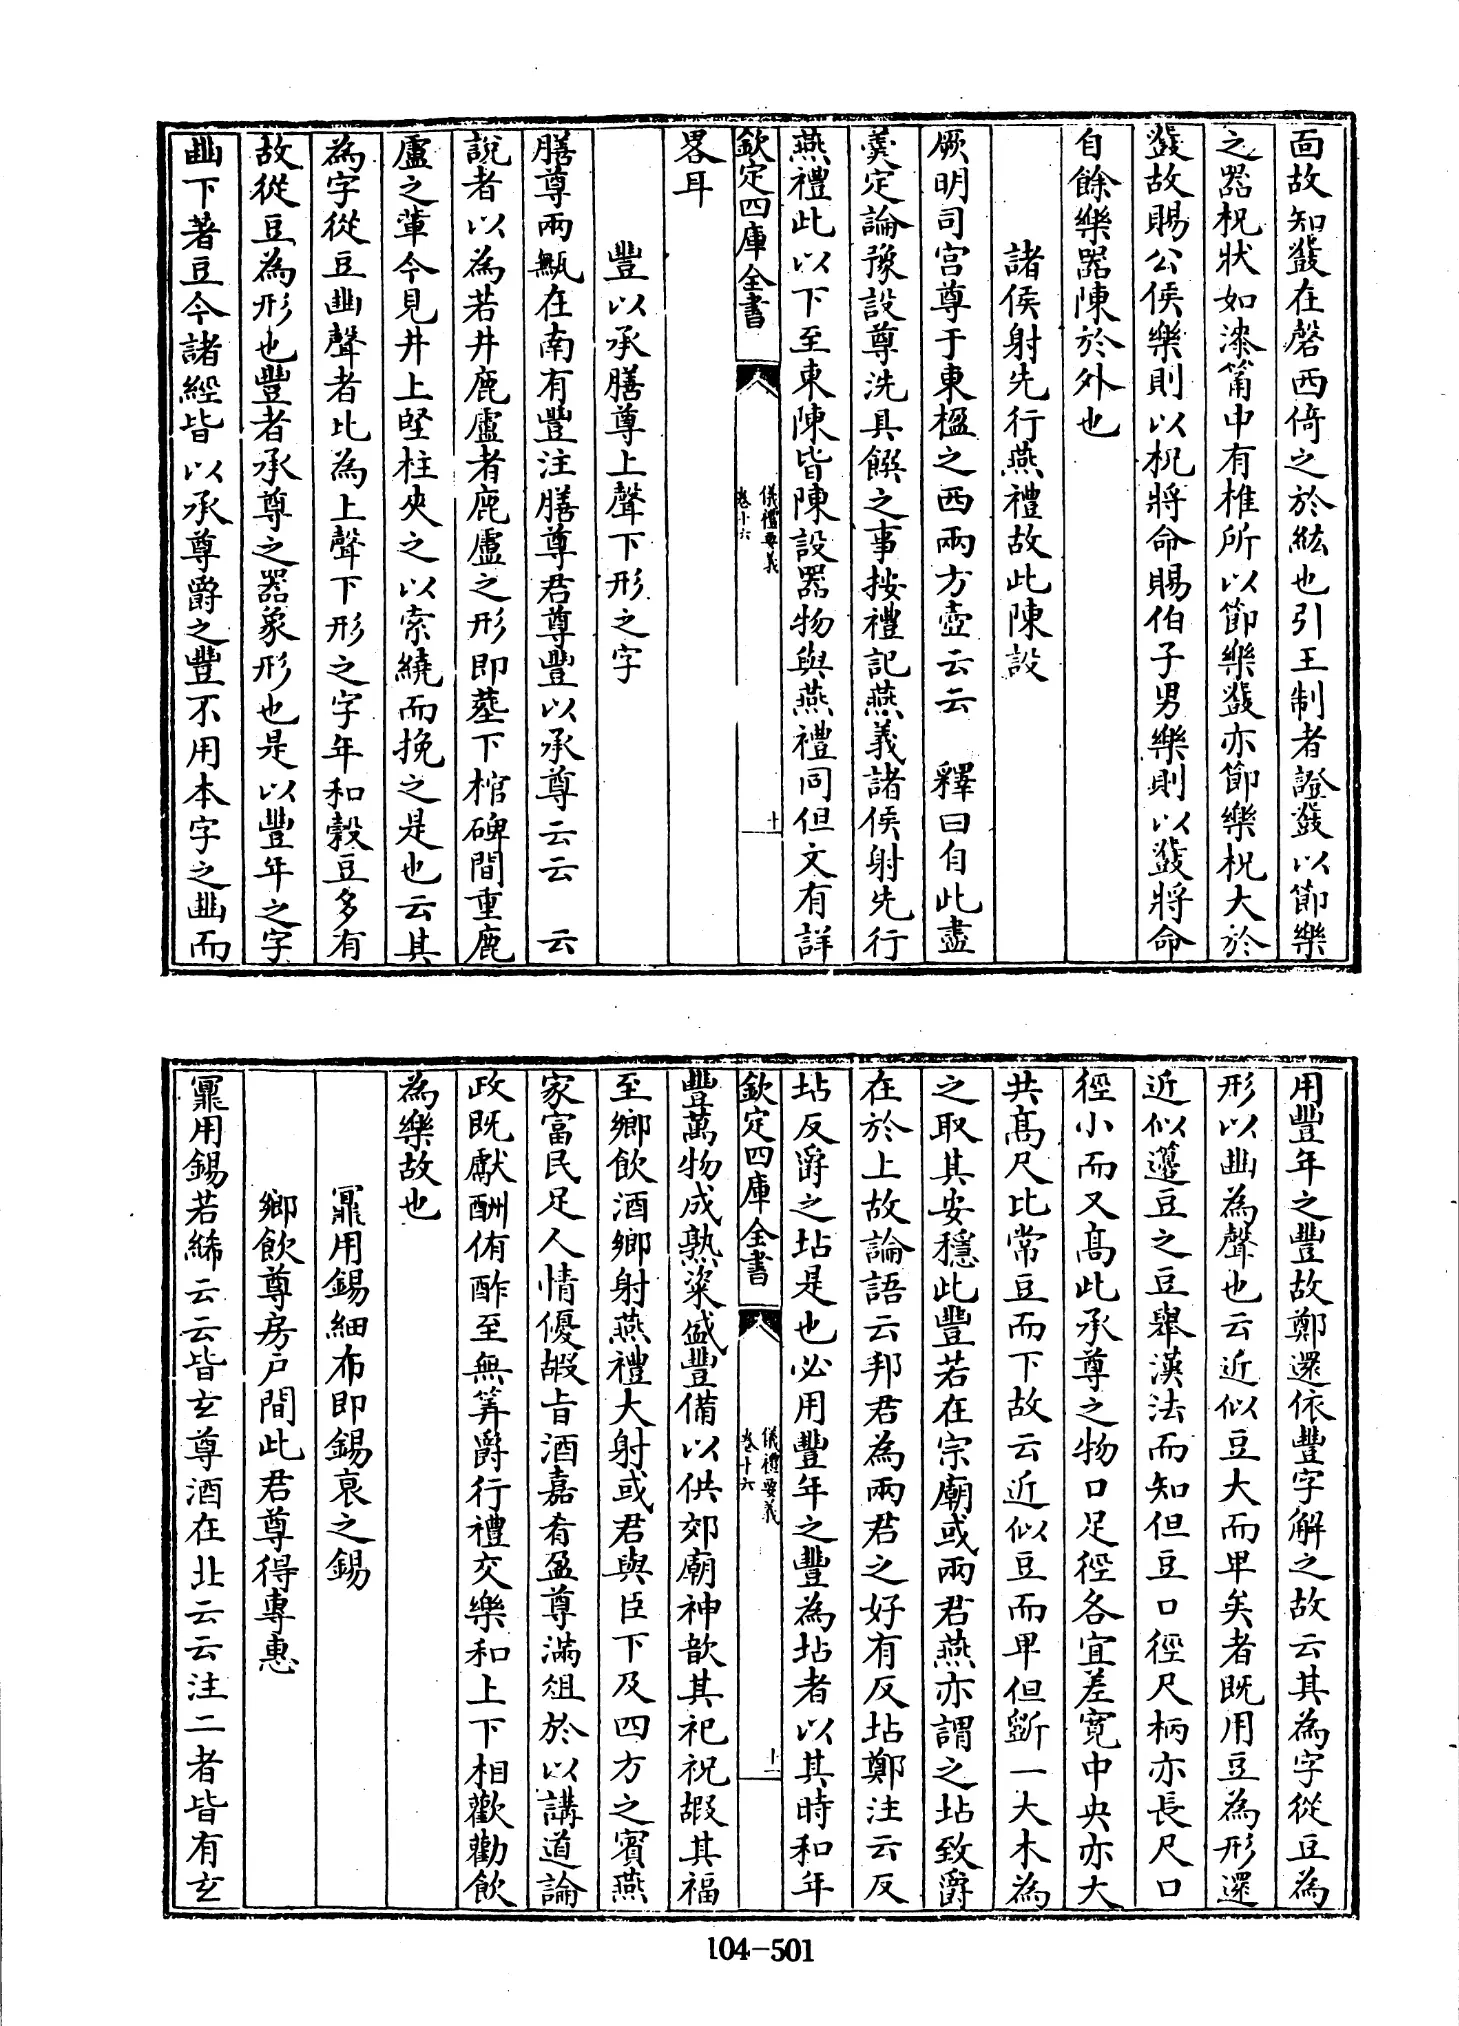 面故知鼗在磬西倚之於紘也引王制者證鼗以節樂
之器柷狀如漆筩中有椎所以節樂鼗亦節樂柷大於
鼗故賜公侯樂則以柷將命賜伯子男樂則以鼗將命
自餘樂器陳於外也
諸侯射先行燕禮故此陳設
厥明司宫尊于東楹之西兩方壺云云　釋曰自此盡
羮定論豫設尊洗具饌之事按禮記燕義諸侯射先行
燕禮此以下至東陳皆陳設器物與燕禮同但文有詳
欽定四庫全書
儀禮要義
卷十六
十
畧耳
豐以承膳尊上聲下形之字
膳尊兩甒在南有豐注膳尊君尊豐以承尊云云　云
說者以為若井鹿盧者鹿盧之形即塟下棺碑間重鹿
盧之軰今見井上竪柱夾之以索繞而挽之是也云其
為字從豆𠁳聲者比為上聲下形之字年和穀豆多有
故從豆為形也豐者承尊之器象形也是以豐年之字
𠁳下著豆今諸經皆以承尊爵之豐不用本字之𠁳而
用豐年之豐故鄭還依豐字解之故云其為字從豆為
形以𠁳為聲也云近似豆大而卑矣者既用豆為形還
近似籩豆之豆舉漢法而知但豆口徑尺柄亦長尺口
徑小而又高此承尊之物口足徑各宜差寛中央亦大
共高尺比常豆而下故云近似豆而卑但斵一大木為
之取其安穏此豐若在宗廟或兩君燕亦謂之坫致爵
在於上故論語云邦君為兩君之好有反坫鄭注云反
坫反爵之坫是也必用豐年之豐為坫者以其時和年
欽定四庫全書
儀禮要義
卷十六
十一
豐萬物成熟粢盛豐備以供郊廟神歆其祀祝嘏其福
至鄉飲酒鄉射燕禮大射或君與臣下及四方之賓燕
家富民足人情優嘏旨酒嘉肴盈尊滿俎於以講道論
政既獻酬侑酢至無筭爵行禮交樂和上下相歡勸飲
為樂故也
冪用錫細布即錫衰之錫
鄉飲尊房戸間此君尊得專惠
冪用錫若絺云云皆玄尊酒在北云云注二者皆有玄
104-501